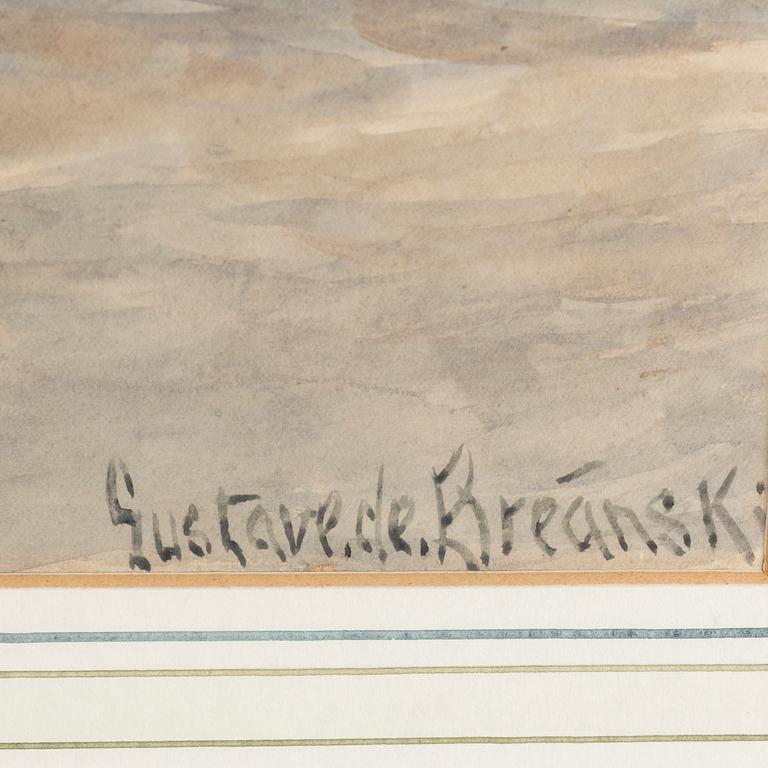 Gustave.de.Breánski